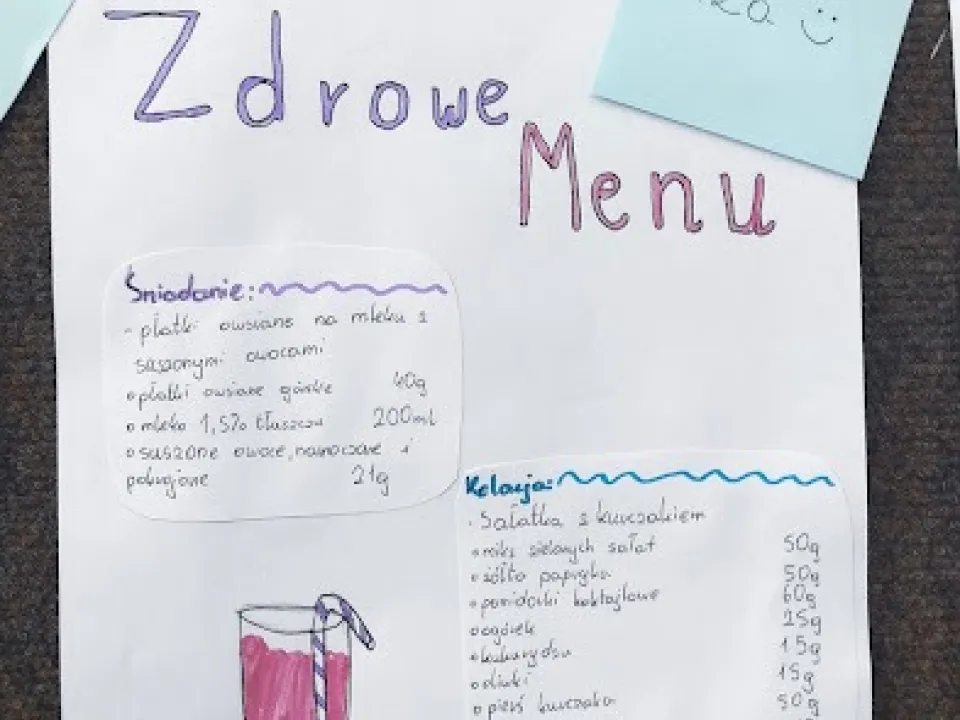 Zdrowe
Menu
Śniadanie:
- płatki owsiane na mleku z
suszonymi owocami
płatki owsiane górskie 40g
mleko 1,5% tłuszczu 200ml
suszone owoce, namoczone i
pokrojone 21g
Kolacja:
Sałatka z kurczakiem
miks zielonych sałat 50g
żółta papryka 50g
pomidorki koktajlowe 60g
ogórek 25g
kukurydza 15g
oliwki 15g
pierś kurczaka 50g